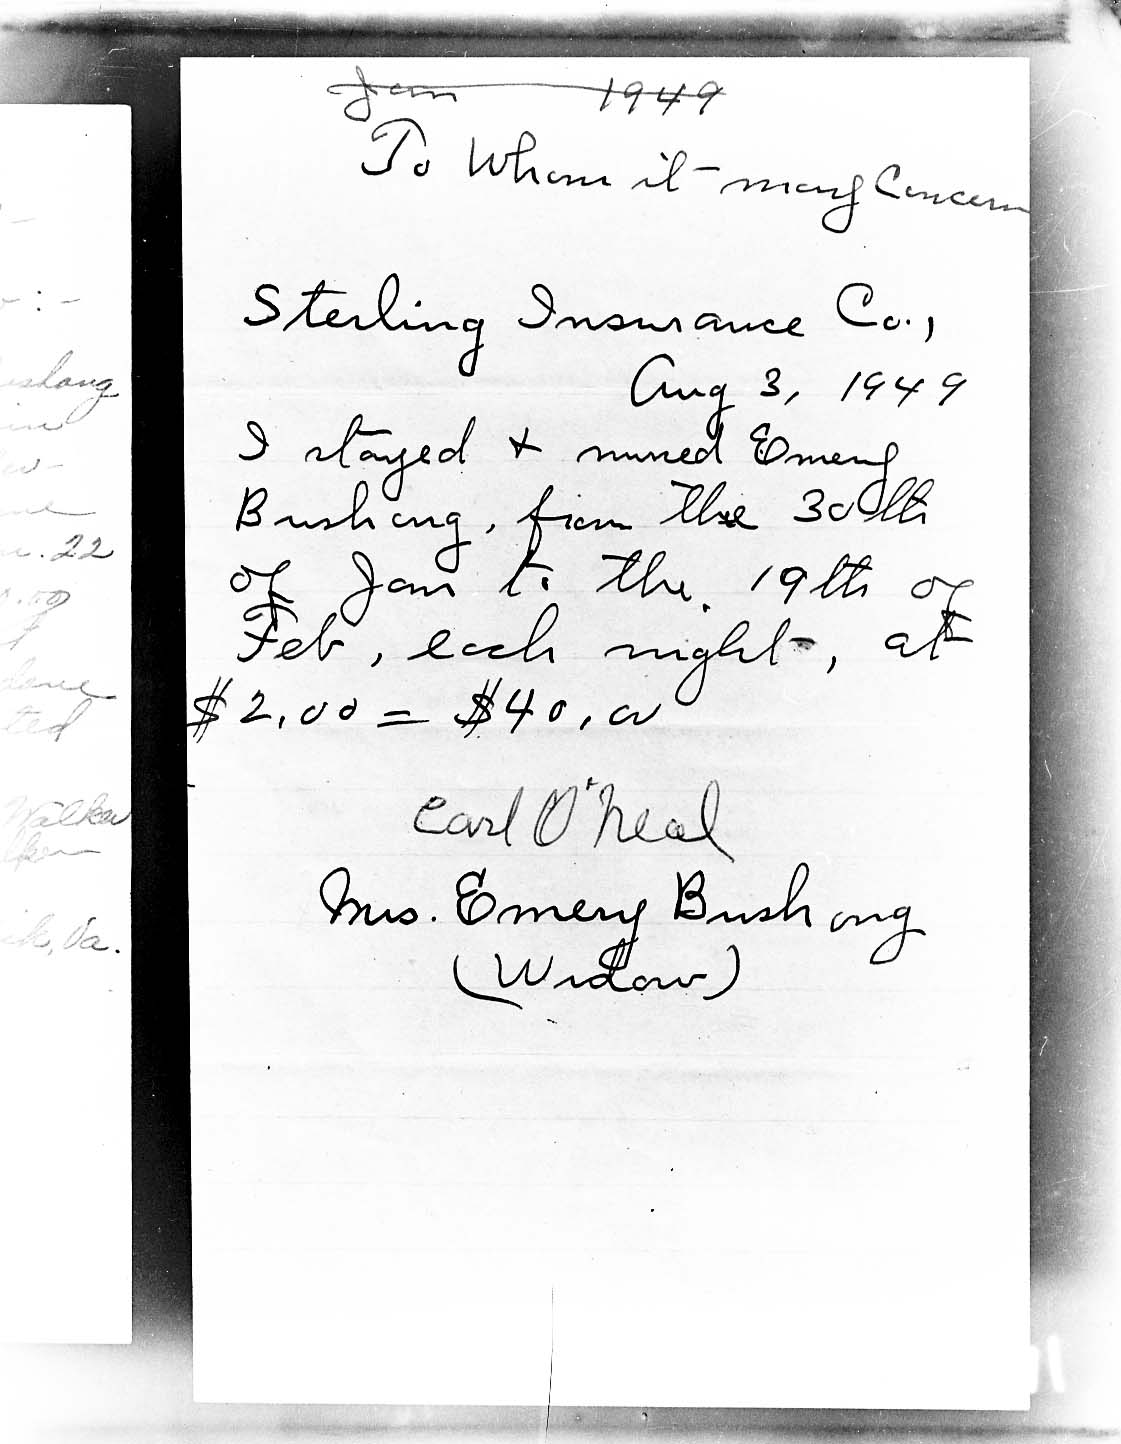 Jan 1949
To Whom it may Concern
Sterling Insurance Co.,
Aug 3, 1949
I stayed & nursed Emery
Bushong, from the 30th
of Jan to the 19th of
Feb, each night, at
$2.00 = $40.00
Carl O'Neal
Mrs. Emery Bushong
(Widow)
ushong
in
. 22
ted
Walker
, Va.